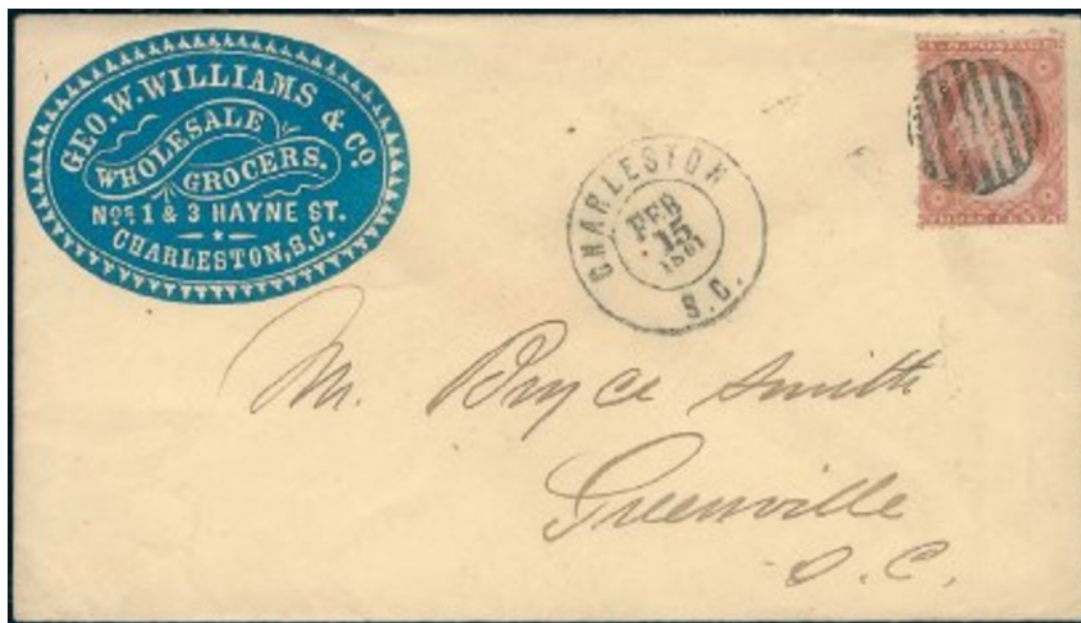 GEO. W. WILLIAMS & CO.
WHOLESALE
GROCERS.
Nos. 1 & 3 HAYNE ST.
CHARLESTON, S.C.
CHARLESTON
FEB
15
1861
S.C.
U.S. POSTAGE
THREE CENTS
Mr. Bryce Smith
Greenville
S. C.